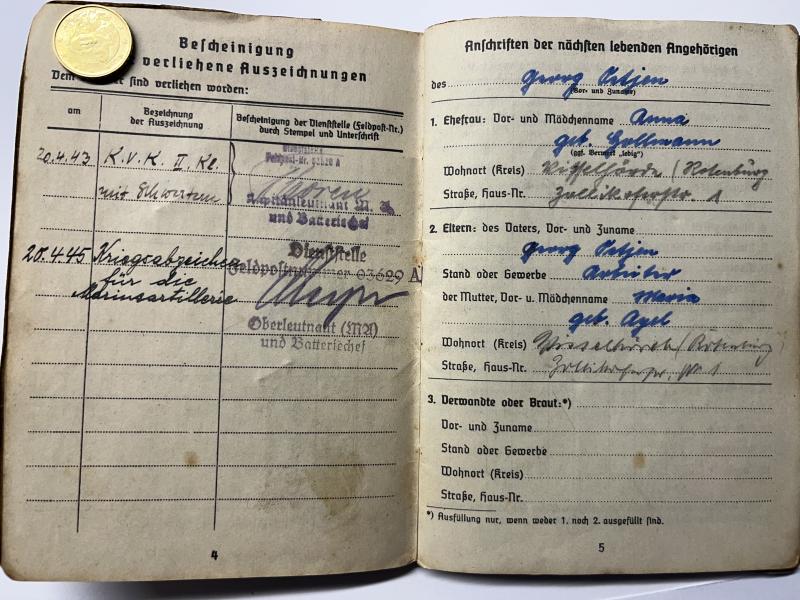 Bescheinigung
verliehene Auszeichnungen
sind verliehen worden:
am
Bezeichnung
der Auszeichnung
Bescheinigung der Dienststelle (Feldpost-Nr.)
durch Stempel und Unterschrift
20.4.43 K.V.K. II. Kl.
mit Schwertern
Kapitänleutnant M. A.
und Batteriechef
20.4.45 Kriegsabzeichen
für die
Marineartillerie
Dienststelle
Feldpostnummer 03629 A
Oberleutnant (MA)
und Batteriechef
4
Anschriften der nächsten lebenden Angehörigen
des Georg
(Vor- und Zuname)
1. Ehefrau: Vor- und Mädchenname Anna
geb.
(ggf. Vermerk „ledig“)
Wohnort (Kreis) (Rotenburg
Straße, Haus-Nr. 1
2. Eltern: des Vaters, Vor- und Zuname
Georg
Stand oder Gewerbe Arbeiter
der Mutter, Vor- u. Mädchenname Maria
geb.
Wohnort (Kreis) (Rotenburg)
Straße, Haus-Nr. 1
3. Verwandte oder Braut:*)
Vor- und Zuname
Stand oder Gewerbe
Wohnort (Kreis)
Straße, Haus-Nr.
*) Ausfüllung nur, wenn weder 1. noch 2. ausgefüllt sind.
5